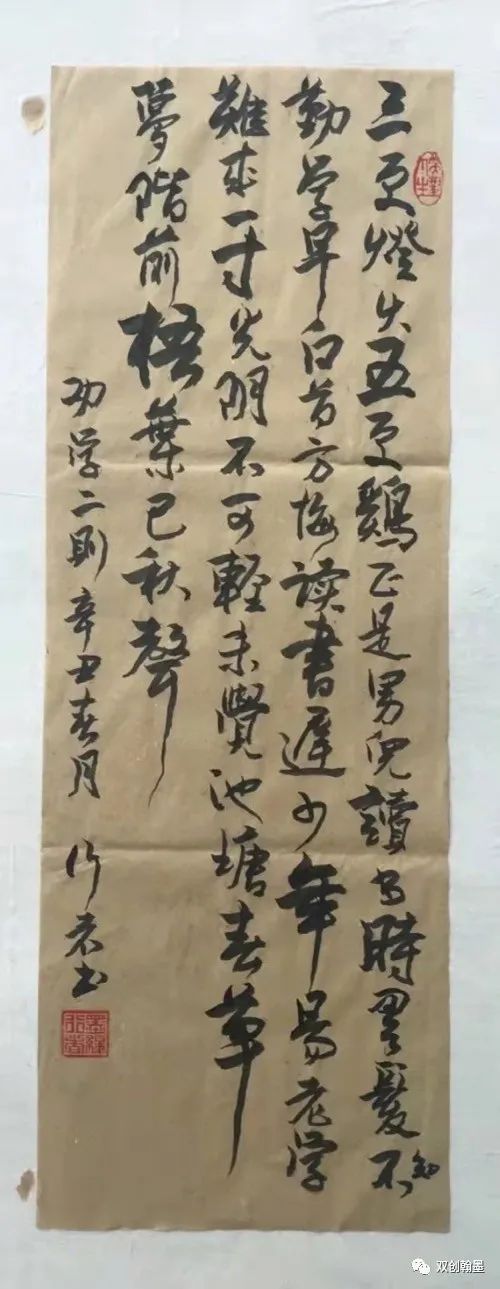 三更燈火五更鷄正是男兒讀书時黑髮不知
勤学早白首方悔读書遲少年易老学
難成一寸光阴不可輕未覺池塘春草
夢階前梧葉已秋聲
劝学二則辛丑春月
书
双创翰墨